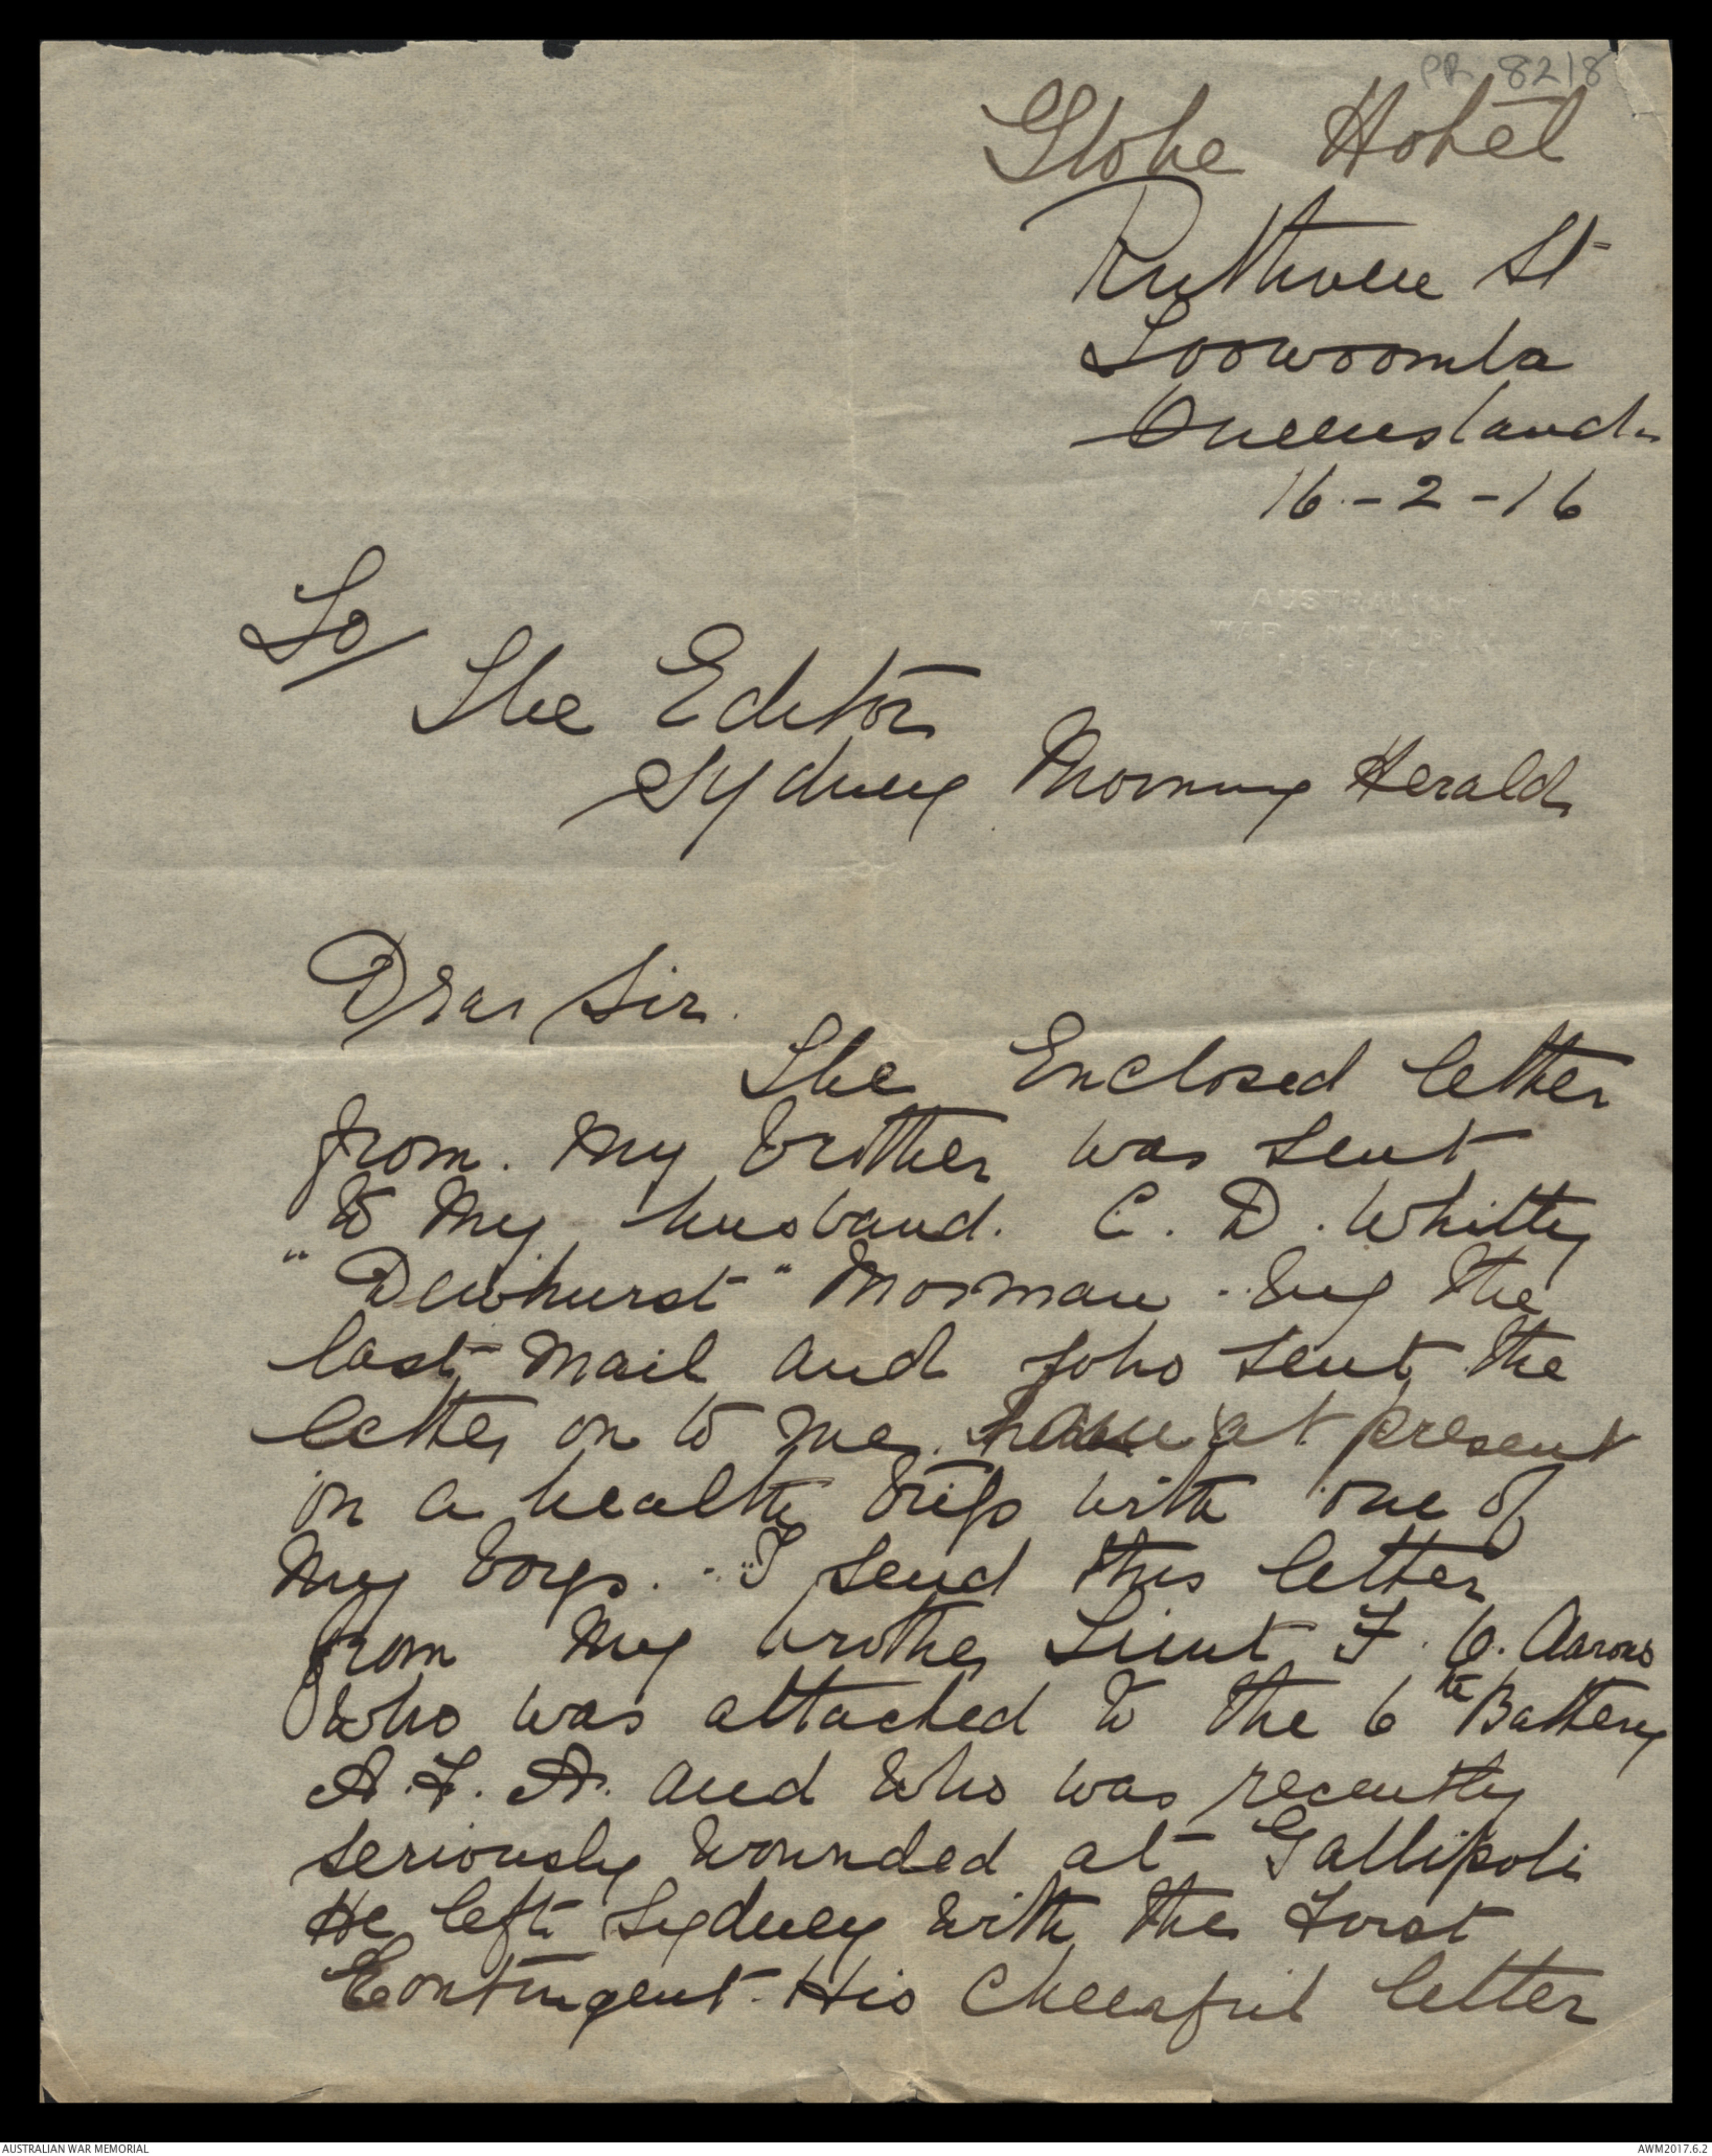 PR 8218
Globe Hotel
Ruthven St
Toowoomba
Queensland.
16.-2-16
AUSTRALIAN
WAR MEMORIAL
To/
The Editor
Sydney Morning Herald
Dear Sir.
The Enclosed letter
from. my brother was sent
to my husband. C. D. Whitty
"Dewhurst" Mosman. by the
last mail and who sent the
letter on to me. at present
on a health trip with one of
my boys. - I send this letter
from my brother Lieut F. Aarons
who was attached to the 6th Battery
A.F.A. and who was recently
seriously wounded at Gallipoli
He left Sydney with the First
Contingent. His cheerful letter
AUSTRALIAN WAR MEMORIAL
AWM2017.6.2